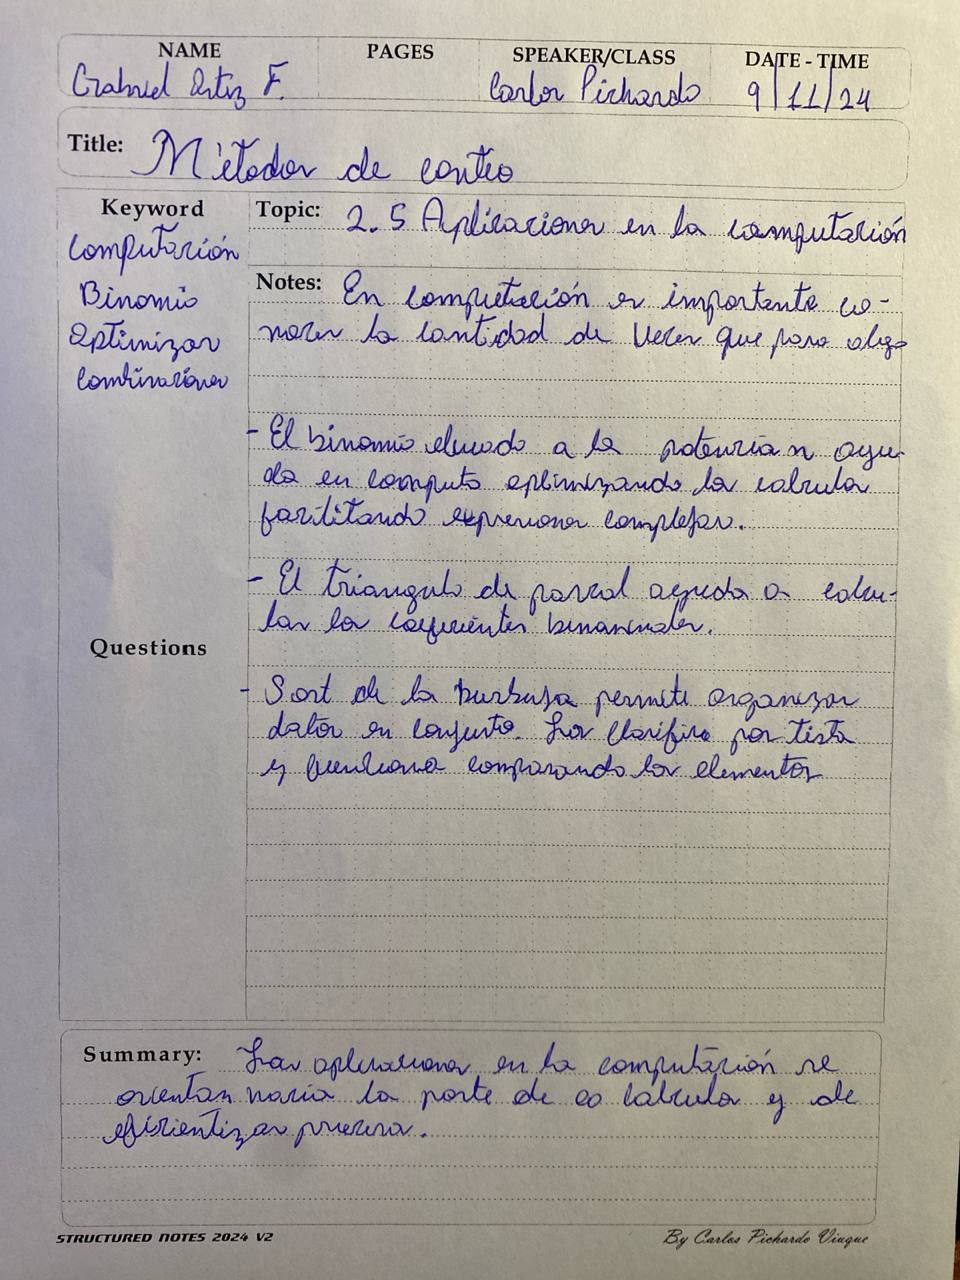 NAME PAGES SPEAKER/CLASS DATE - TIME
Gabriel Ortiz F. Carlos Pichardo 9/11/24
Title: Métodos de conteo
Keyword
Computación
Binomio
Optimizar
Combinaciones
Topic: 2.5 Aplicaciones en la computación
Notes: En computación es importante co-
nocer la cantidad de veces que pasa algo
- El binomio elevado a la potencia n ayu-
da en computo optimizando los calculos
facilitando expresiones complejas.
- El triangulo de pascal ayuda a calcu-
lar los coeficientes binomiales.
Questions
- Sort de la burbuja permite organizar
datos en conjunto. Los clasifica por lista
y funciona comparando los elementos
Summary: Las aplicaciones en la computación se
orientan hacia la parte de los calculos y de
eficientizar procesos.
STRUCTURED NOTES 2024 V2
By Carlos Pichardo Viuque